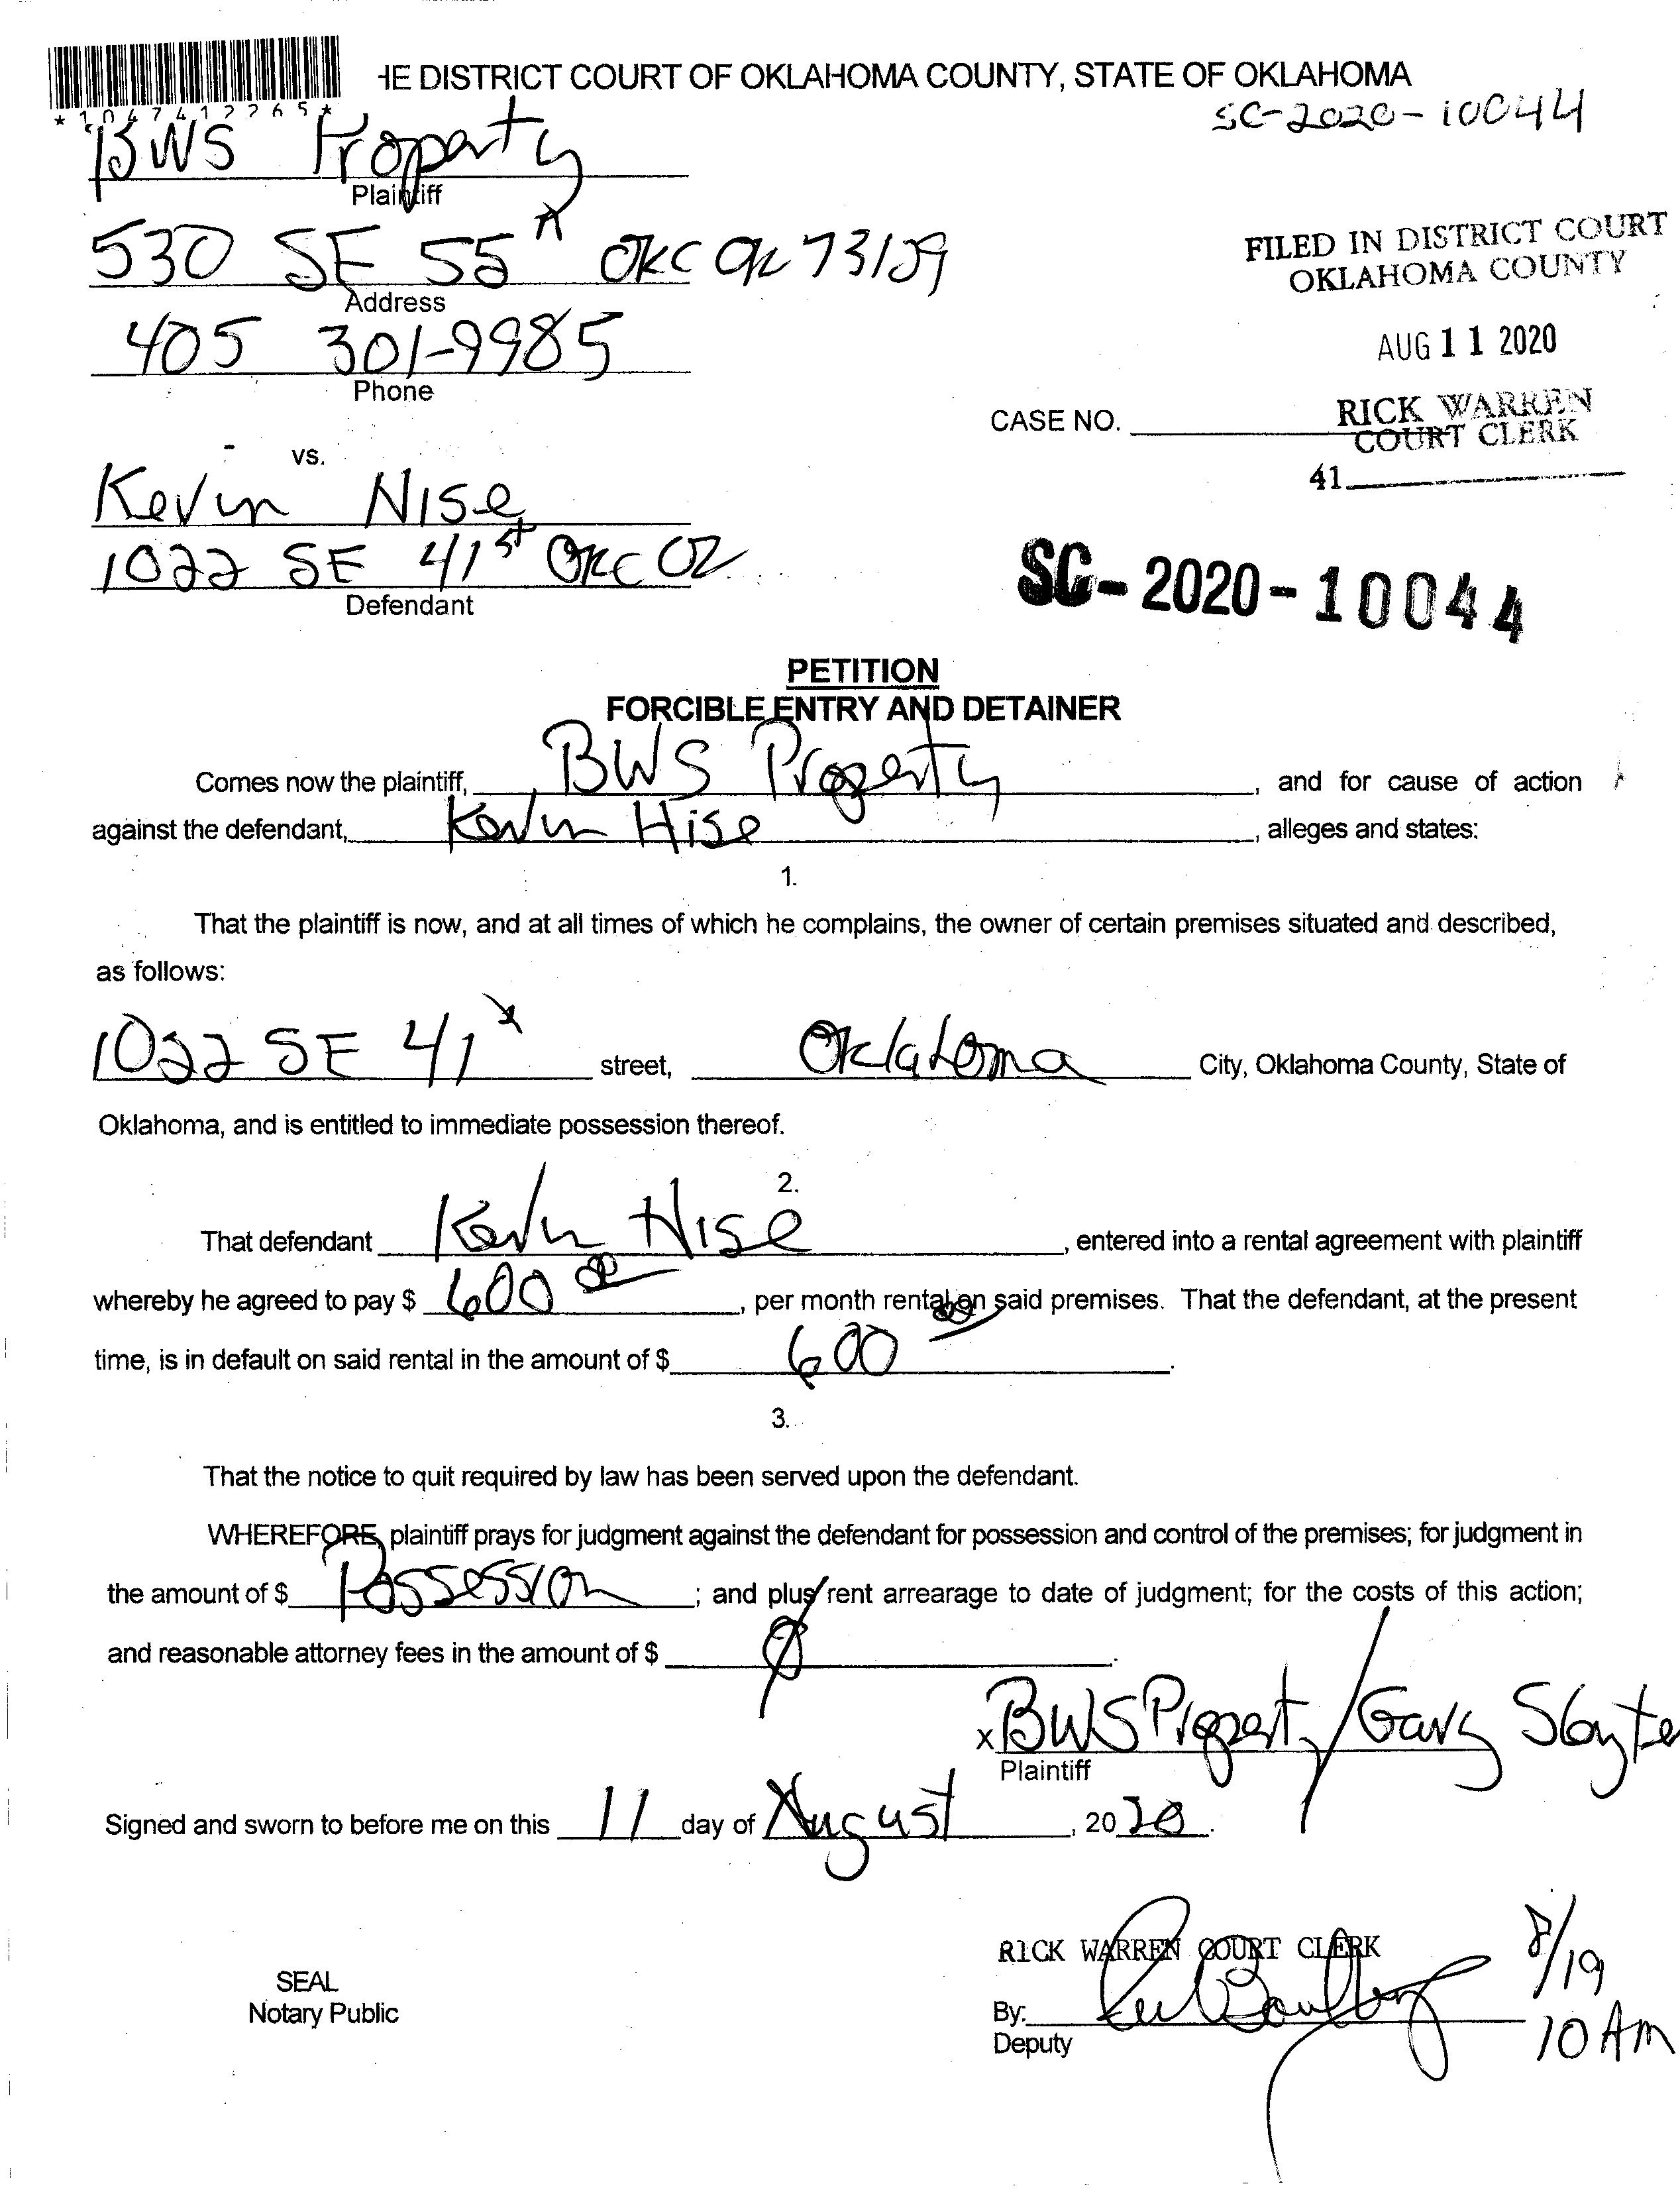 HE DISTRICT COURT OF OKLAHOMA COUNTY, STATE OF OKLAHOMA
*1047412265*
SC-2020-10044
BWS Property
Plaintiff
530 SE 55th OKC OK 73129
Address
FILED IN DISTRICT COURT
OKLAHOMA COUNTY
405 301-9985
Phone
AUG 11 2020
CASE NO.
RICK WARREN
COURT CLERK
41
vs.
Kevin Hise
1022 SE 41st OKC OK
Defendant
SC-2020-10044
PETITION
FORCIBLE ENTRY AND DETAINER
Comes now the plaintiff, BWS Property, and for cause of action
against the defendant, Kevin Hise, alleges and states:
1.
That the plaintiff is now, and at all times of which he complains, the owner of certain premises situated and described,
as follows:
1022 SE 41st street, Oklahoma City, Oklahoma County, State of
Oklahoma, and is entitled to immediate possession thereof.
2.
That defendant Kevin Hise, entered into a rental agreement with plaintiff
whereby he agreed to pay $ 600 00, per month rental on said premises. That the defendant, at the present
time, is in default on said rental in the amount of $ 600 00.
3.
That the notice to quit required by law has been served upon the defendant.
WHEREFORE, plaintiff prays for judgment against the defendant for possession and control of the premises; for judgment in
the amount of $ Possession; and plus rent arrearage to date of judgment; for the costs of this action;
and reasonable attorney fees in the amount of $ 0.
x BWS Property/Gary Slayter
Plaintiff
Signed and sworn to before me on this 11 day of August, 2020.
RICK WARREN COURT CLERK
8/19
SEAL
Notary Public
By:
10 AM
Deputy